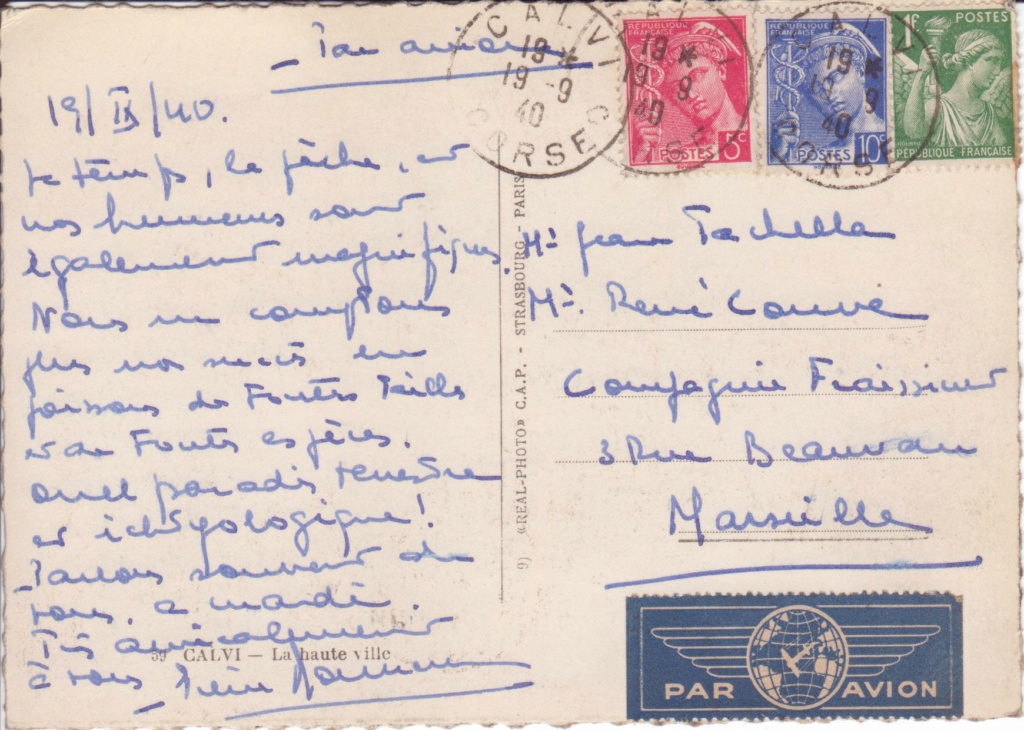 Par avion
19/IX/40.
Le temps, la pêche, et
nos humeurs sont
également magnifiques.
Nous ne comptons
plus nos succès en
poissons de Toutes Tailles
et de Toutes espèces.
Quel paradis terrestre
et ichtyologique!
Parlons souvent de
vous. a mardi.
Très amicalement
à vous Pierre
59 CALVI — La haute ville
9) «REAL-PHOTO» C.A.P. - STRASBOURG - PARIS
CALVI
19 *
19 -9
40
CORSE
RÉPUBLIQUE FRANÇAISE
POSTES 5c
CALVI
19 *
19 9
40
CORSE
RÉPUBLIQUE FRANÇAISE
POSTES 10c
1F POSTES
RÉPUBLIQUE FRANÇAISE
Mr Jean Tachella
Mr. René Couve
Compagnie Fraissinet
3 Rue Beauvau
Marseille
PAR AVION